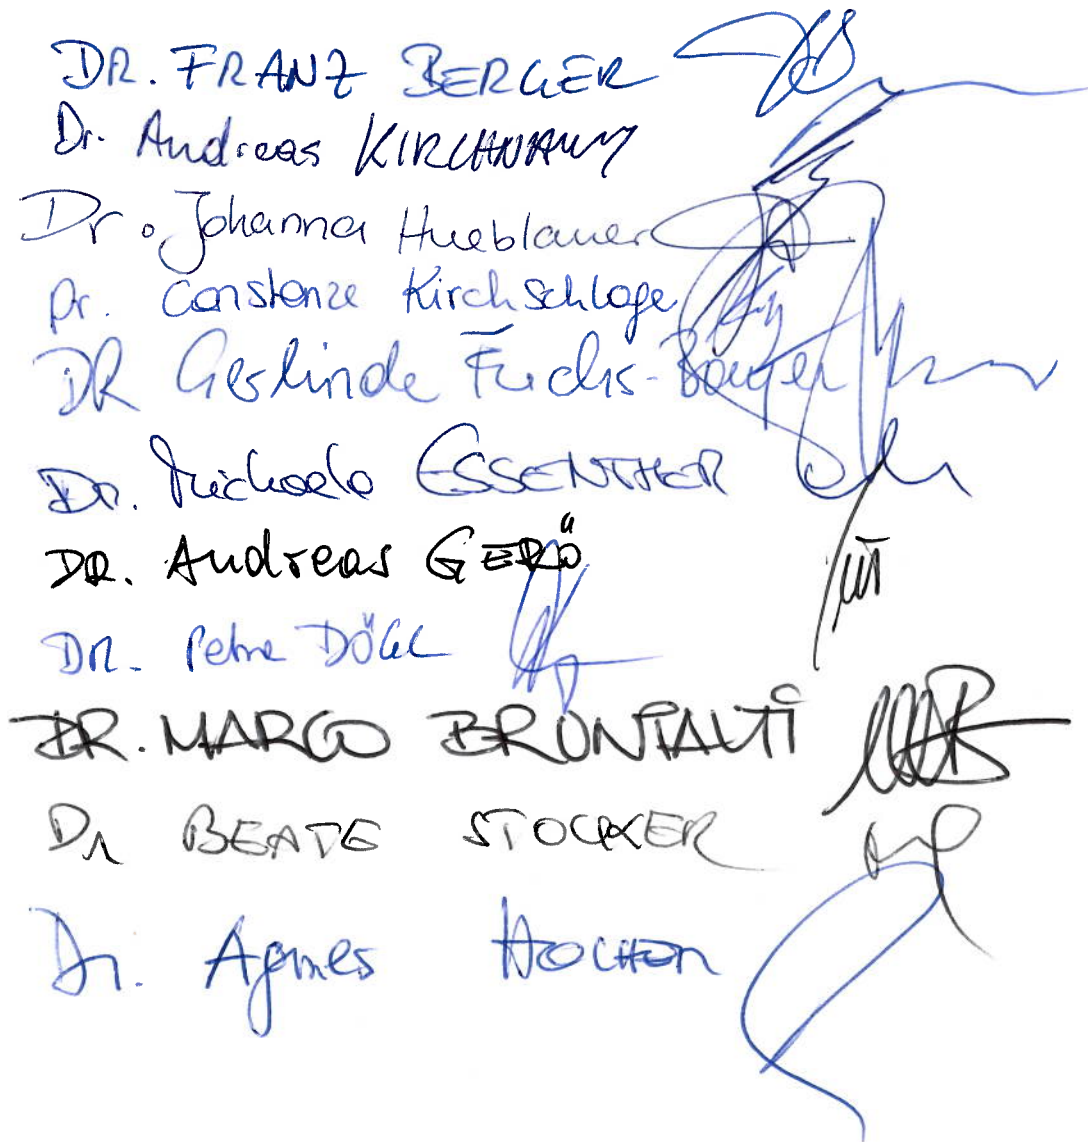 DR. FRANZ BERGER
Dr. Andreas KIRCHNAWY
Dr. Johanna Hueblauer
Dr. Constanze Kirchschlage
DR Gerlinde Fuchs-
Dr. Michaela ESSENTHER
DR. Andreas GERÖ
DR. Petra DÖGL
DR. MARCO BRUNIALTI
Dr BEATE STOCKER
Dr. Agnes